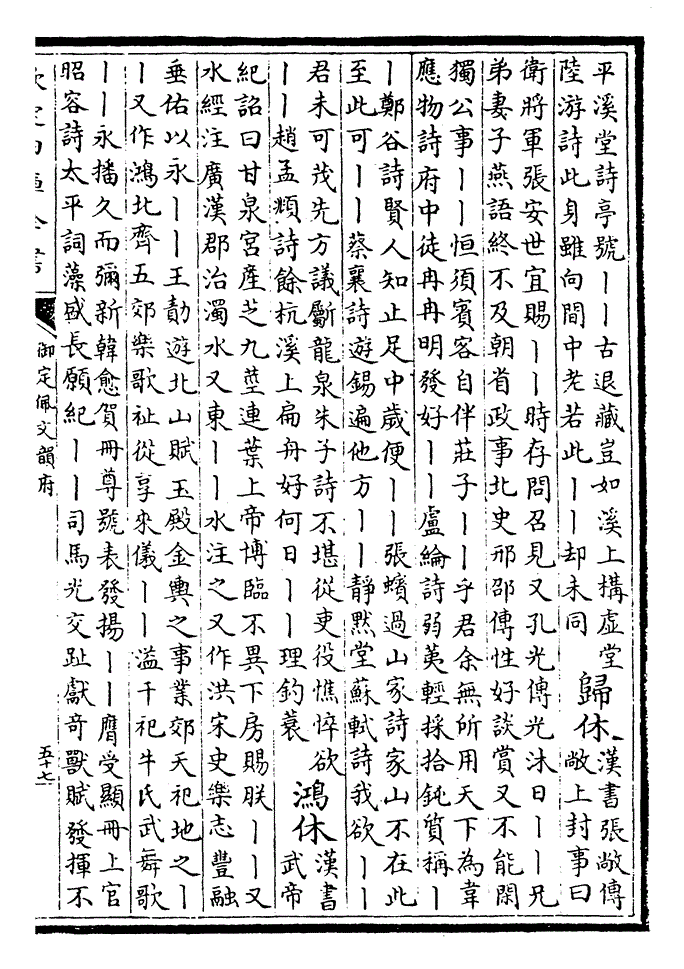 平溪堂詩亭號丨丨古退藏豈如溪上構虛堂
陸游詩此身雖向間中老若此丨丨却未同
歸休
漢書張敞傳
敞上封事曰
衛將軍張安世宜賜丨丨時存問召見又孔光傳光沐日丨丨兄
弟妻子燕語終不及朝省政事北史邢邵傳性好談賞又不能閑
獨公事丨丨恒須賓客自伴莊子丨丨乎君余無所用天下為韋
應物詩府中徒冉冉明發好丨丨盧綸詩弱荑輕採拾鈍質稱丨
丨鄭谷詩賢人知止足中歲便丨丨張蠙過山家詩家山不在此
至此可丨丨蔡襄詩遊錫遍他方丨丨靜默堂蘇軾詩我欲丨丨
君未可茂先方議斸龍泉朱子詩不堪從吏役憔悴欲
丨丨趙孟頫詩餘杭溪上扁舟好何日丨丨理釣蓑
鴻休
漢書
武帝
紀詔曰甘泉宮產芝九莖連葉上帝博臨不異下房賜朕丨丨又
水經注廣漢郡治濁水又東丨丨水注之又作洪宋史樂志豐融
垂佑以永丨丨王勣遊北山賦玉殿金輿之事業郊天祀地之丨
丨又作鴻北齊五郊樂歌祉從享來儀丨丨溢千祀牛氏武舞歌
丨丨永播久而彌新韓愈賀冊尊號表發揚丨丨膺受顯冊上官
昭容詩太平詞藻盛長願紀丨丨司馬光交趾獻奇獸賦發揮不
欽定四庫全書
御定佩文韻府
五十七